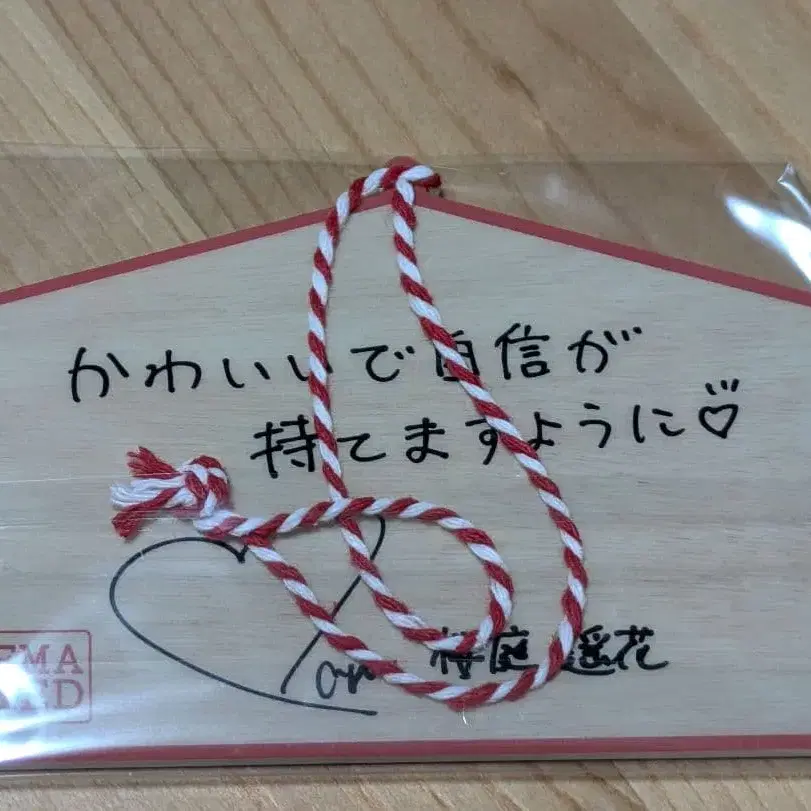 かわいいで自信が
持てますように♡
桜庭 遥花
EMA
ED